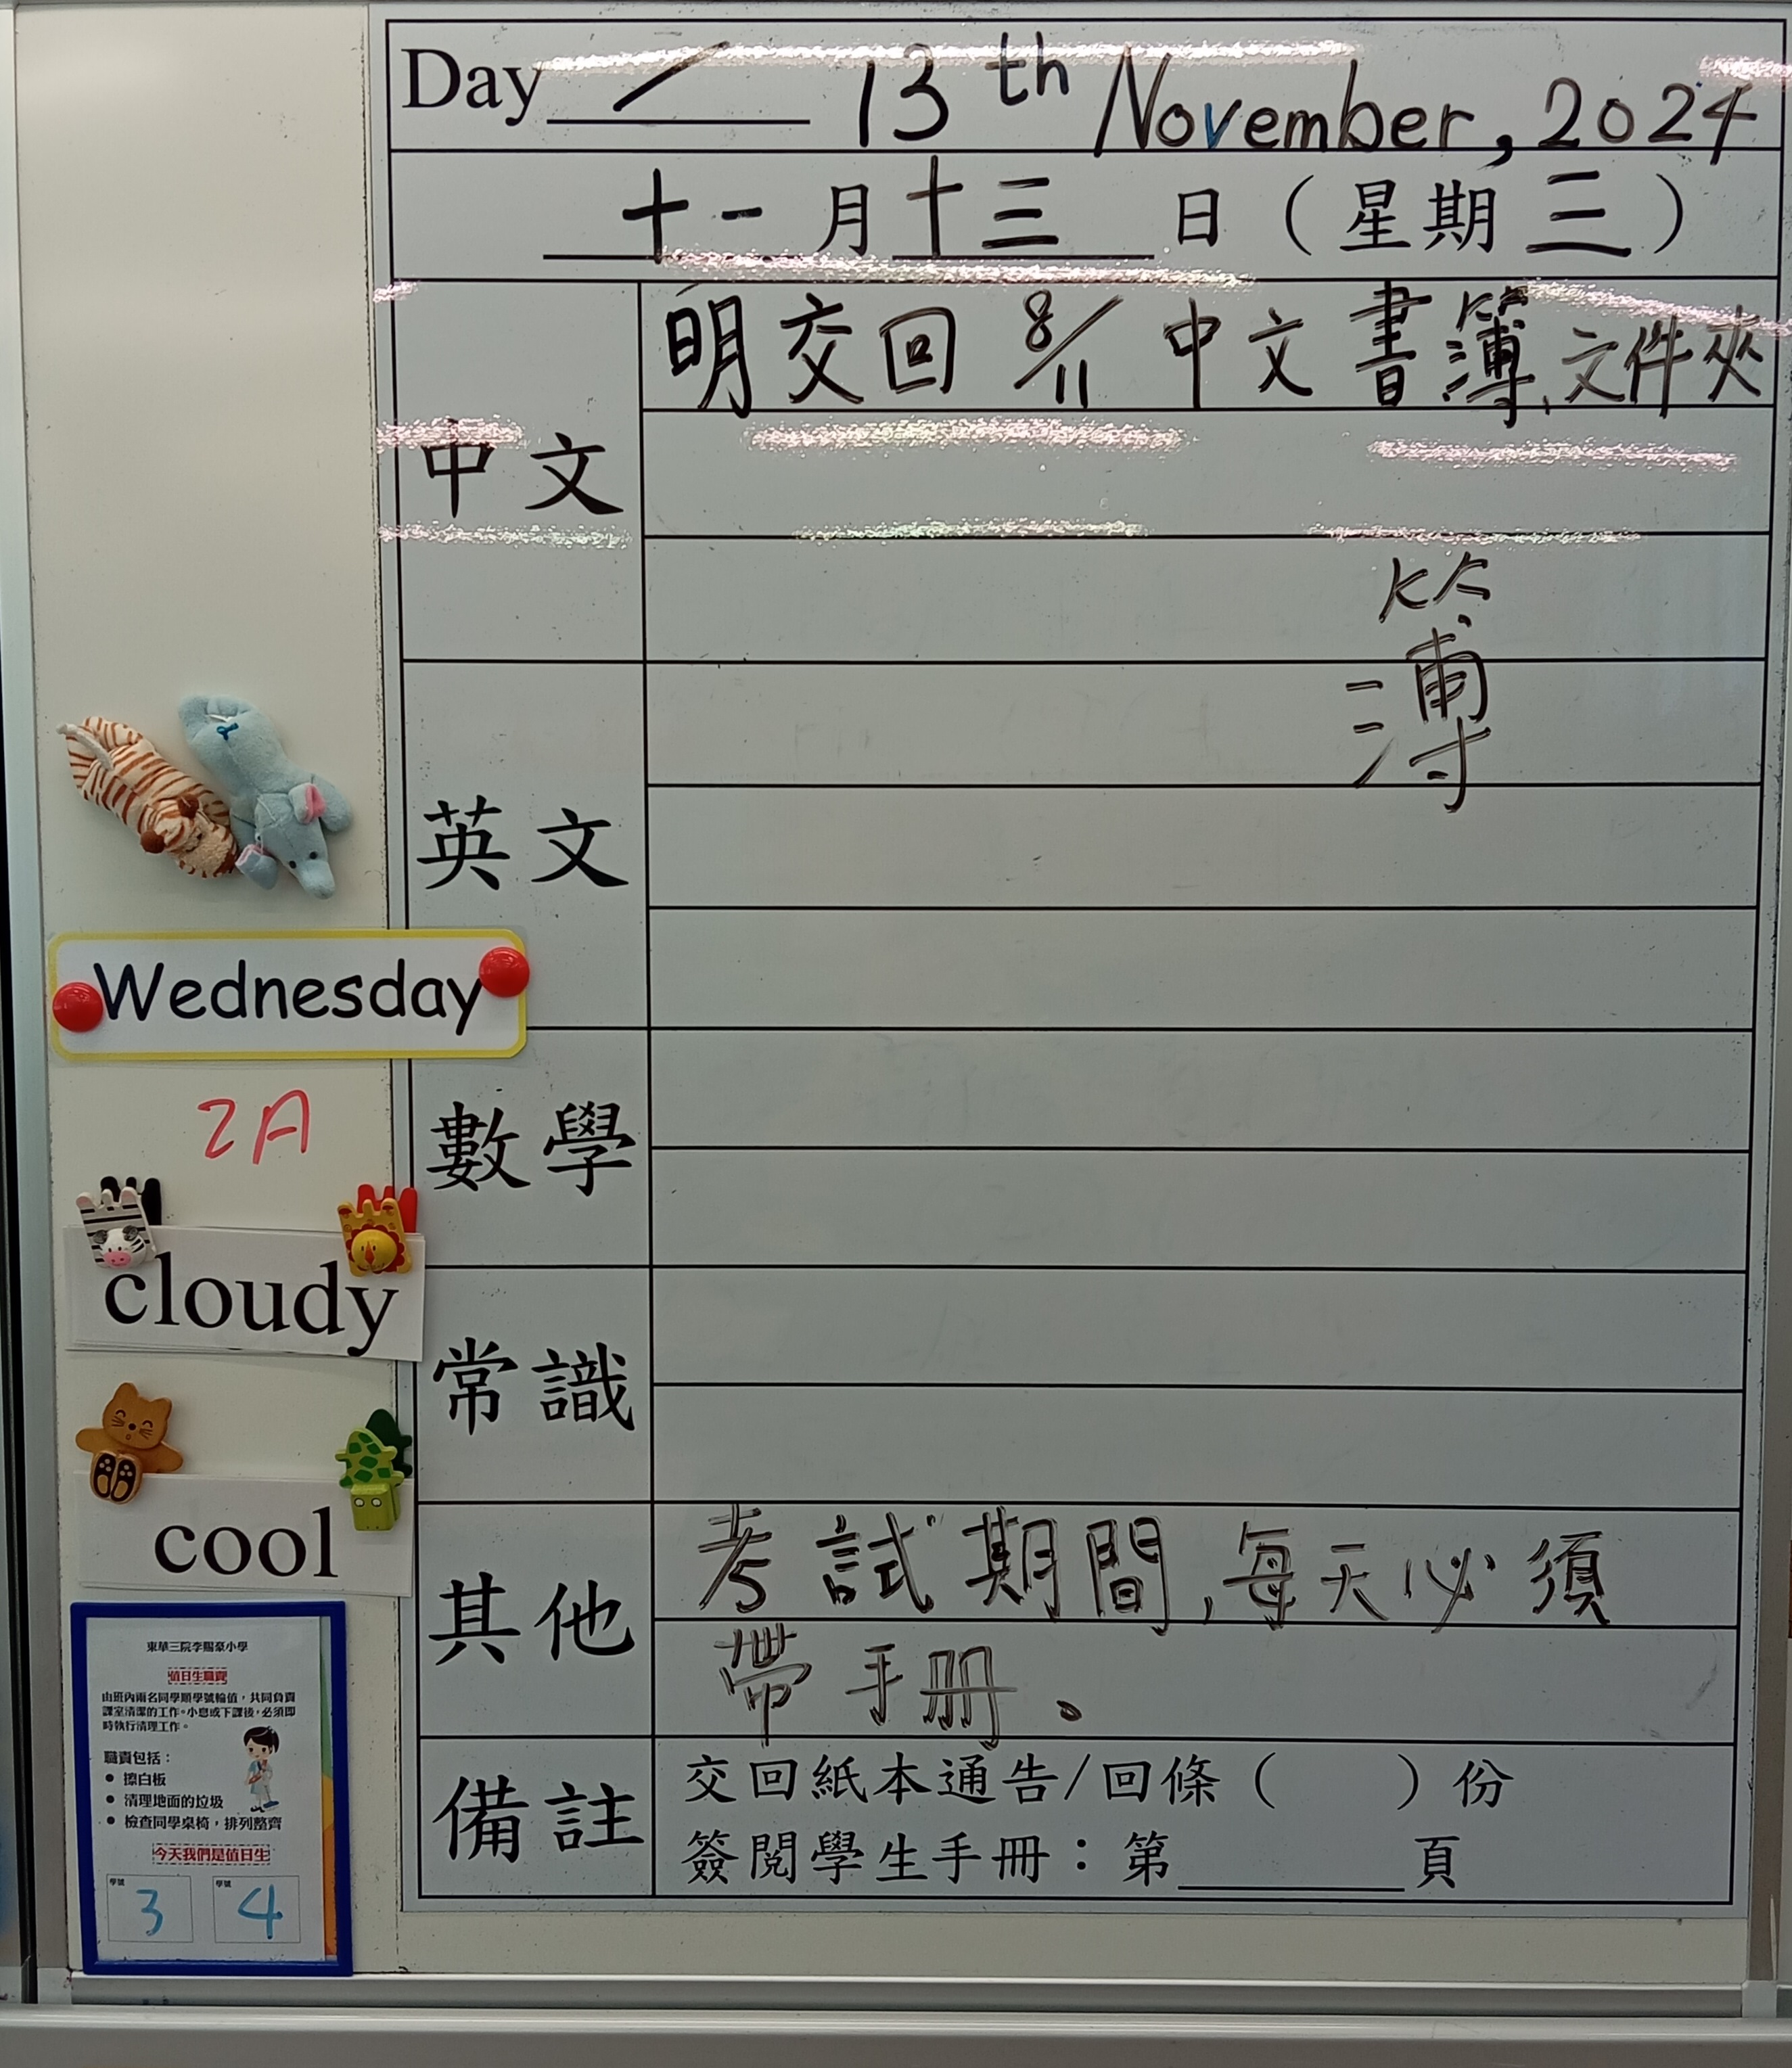 Day / 13th November, 2024
十一月十三日（星期三）
中文
明交回 8/11 中文書簿、文件夾
簿
英文
Wednesday
2A
數學
cloudy
常識
cool
其他
考試期間,每天必須
帶手冊。
備註
交回紙本通告/回條（　　）份
簽閱學生手冊：第______頁
東華三院李賜豪小學
值日生職責
由班內兩名同學順學號輪值，共同負責
課室清潔的工作。小息或下課後，必須即
時執行清理工作。
職責包括：
● 擦白板
● 清理地面的垃圾
● 檢查同學桌椅，排列整齊
今天我們是值日生
學號 學號
3 4